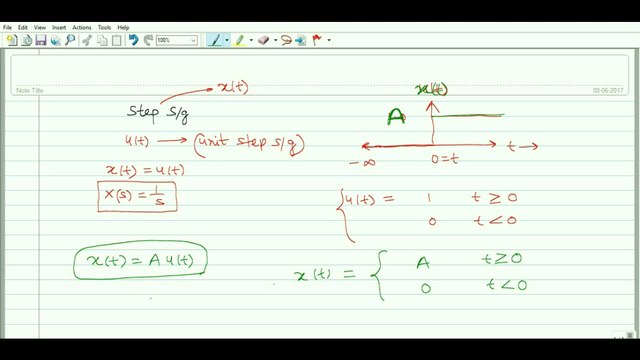 File Edit View Insert Actions Tools Help
100%
Note Title
03-06-2017
x(t)
step s/g
u(t) → (unit step s/g)
x(t) = u(t)
X(s) = 1/s
x(t) = A u(t)
x(t)
A
-∞ 0=t t →
u(t) = 1 t ≥ 0
0 t < 0
x(t) = { A t ≥ 0
0 t < 0